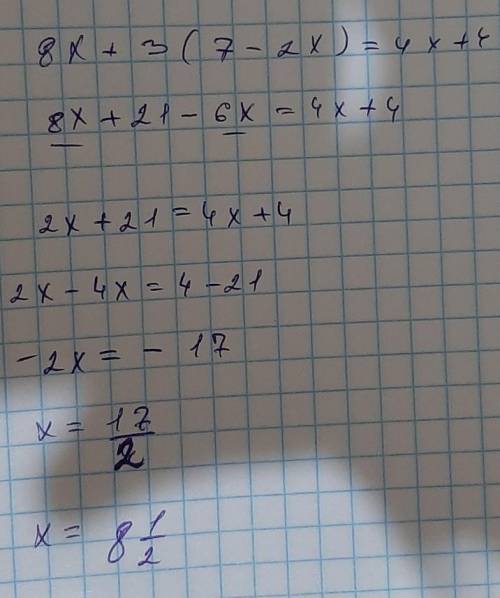 8x + 3(7 - 2x) = 4x + 4
8x + 21 - 6x = 4x + 4
2x + 21 = 4x + 4
2x - 4x = 4 - 21
-2x = - 17
x = 17/2
x = 8 1/2